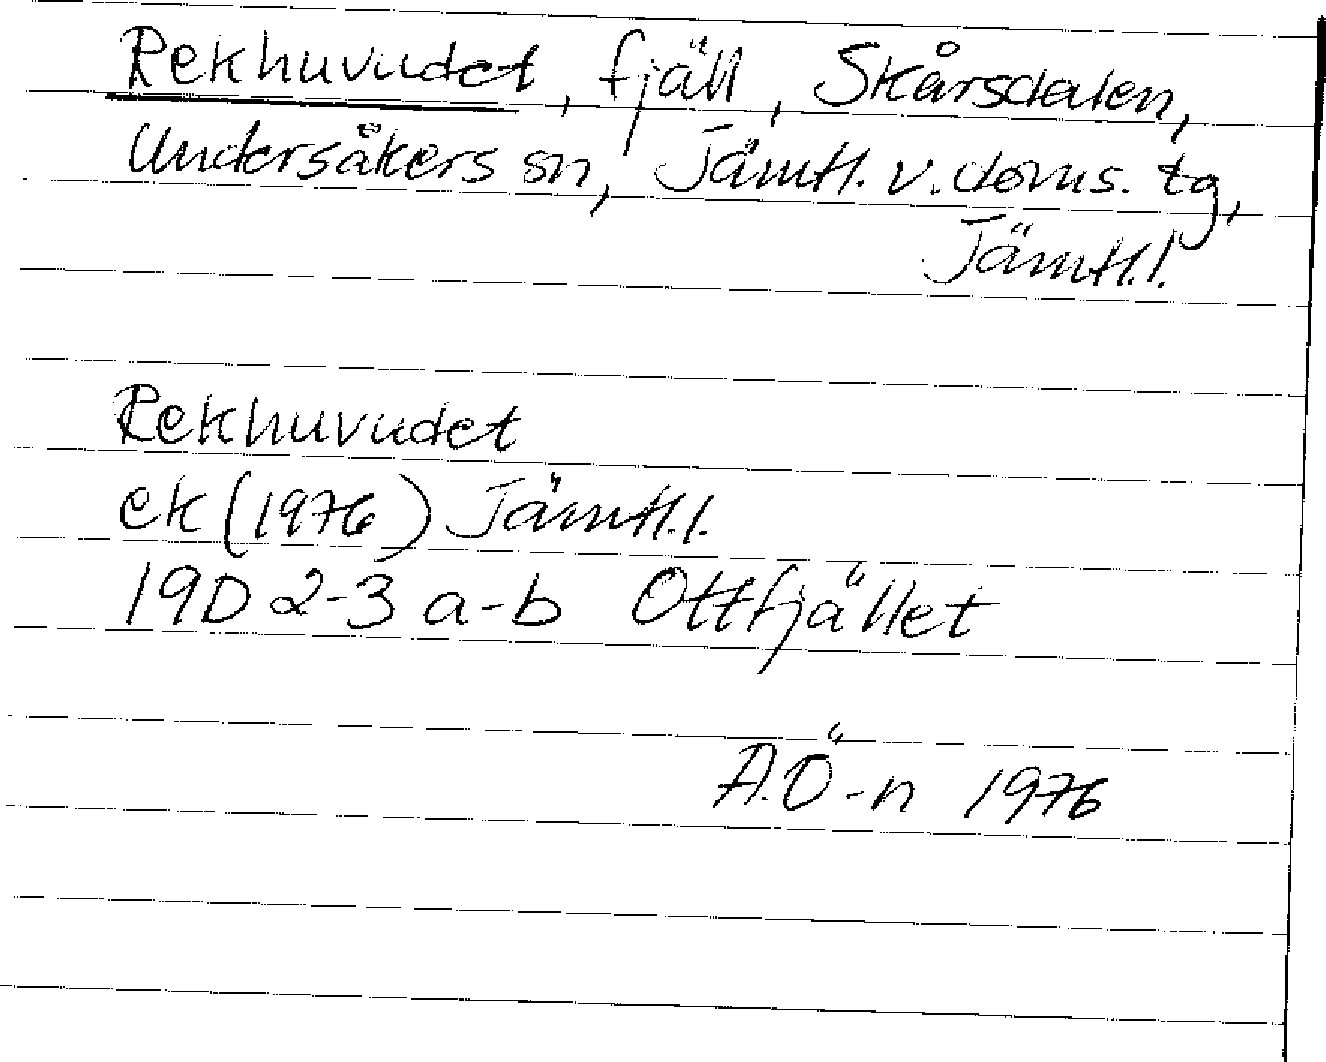 Rekhuvudet, fjäll, Skårsdalen,
Undersåkers sn, Jämtl. v. doms. tg,
Jämtl.l.
Rekhuvudet
ek (1976) Jämtl.l.
19D 2-3 a-b Ottfjället
A.Ö-n 1976